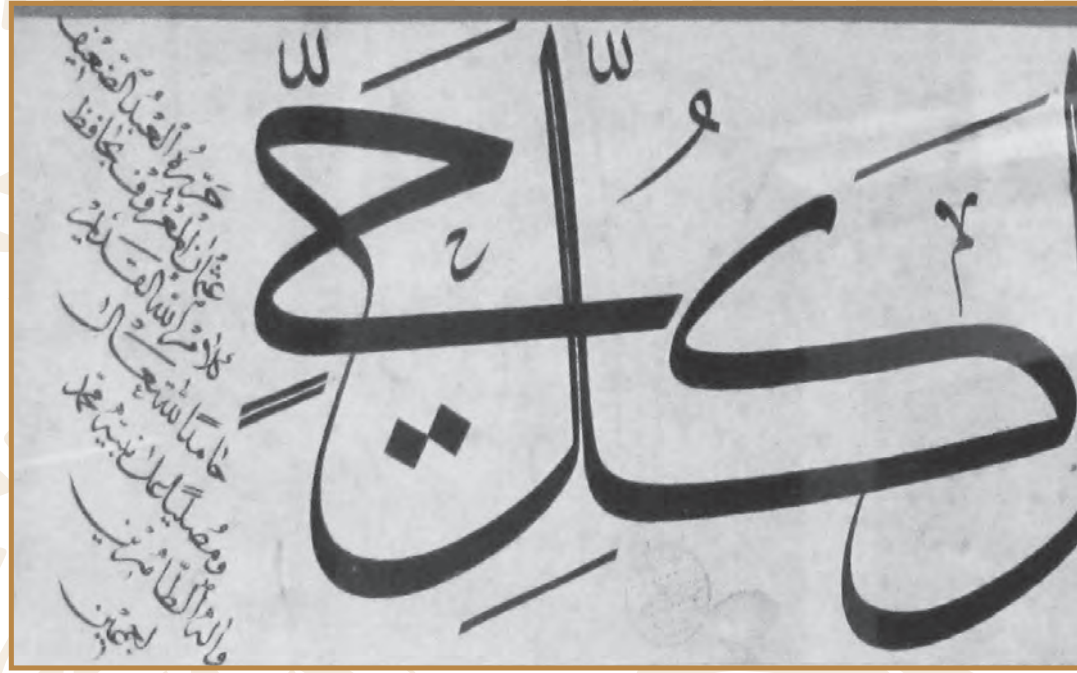 كُلِّ حَيٍّ
حَرَّرَهُ الْعَبْدُ الضَّعِيف
عُثْمَانُ الْمَعْرُوفُ بِحَافِظ
كَلَامِ اللهِ الْقَدِيمِ
حَامِدًا لِلّهِ تَعَالَى
وَمُصَلِّيًا عَلَى نَبِيِّهِ مُحَمَّد
وَالِهِ الطَّاهِرِين
اجْمَعِين